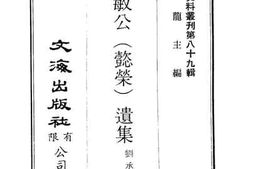 料叢刊第八十九輯
龍主編
敏公（懿榮）遺集
劉承
文海出版社有限公司